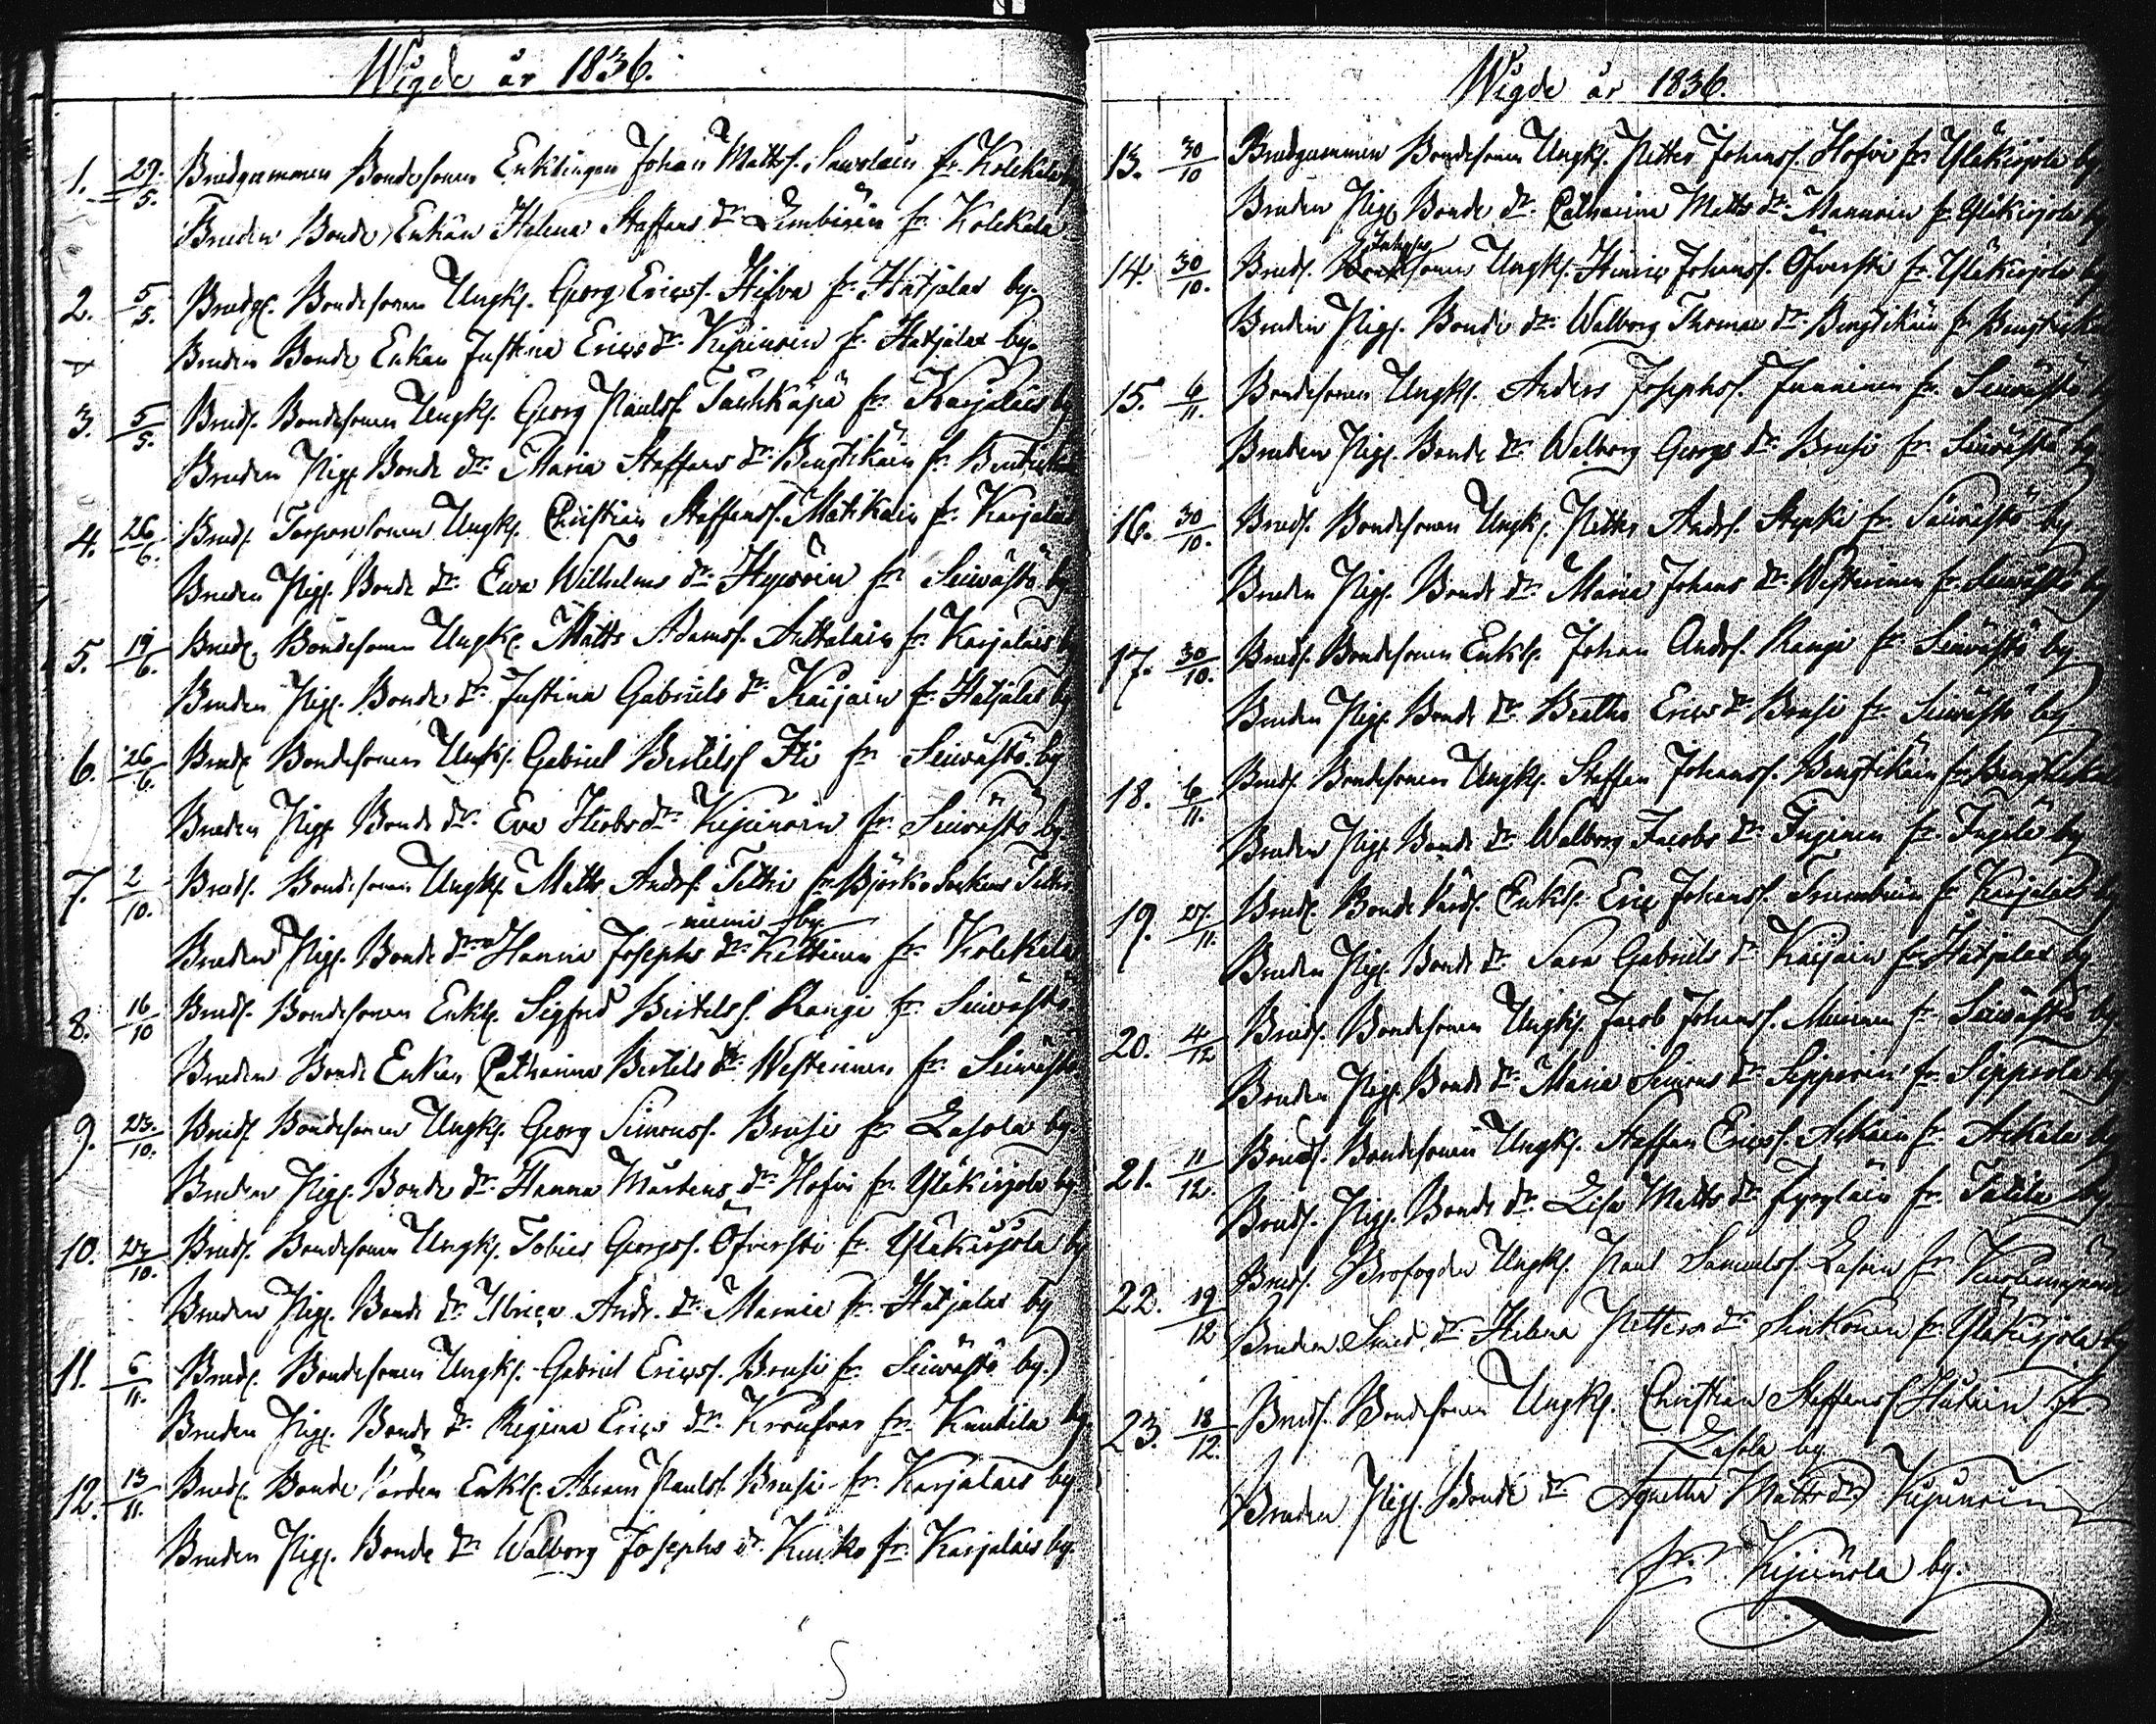 Wigde år 1836.
1. 29/5. Brudgummen Bondesonen Enklingen Johan Mattss. Sawolain fr. Kolekala by
Bruden Bonde Enkan Helena Staffans dr Lembinen fr. Kolekala
2. 5/5. Brudg. Bondesonen Ungk. Georg Ericss. Hilva fr. Hatjalax by.
Bruden Bonde Enkan Justina Erics dr Kijunein fr. Hatjalax by.
3. 5/5. Brudg. Bondesonen Ungk. Georg Paulss. Täuhkäpä fr. Karjalais by
Bruden Pig. Bonde dr Maria Staffans dr Bengtikäin fr.
4. 26/6. Brudg. Torparesonen Ungk. Christian Staffanss. Matikain fr. Karjalais
Bruden Pig. Bonde dr Ewa Wilhelms dr fr. Seiwästö by.
5. 19/6. Brudg. Bondesonen Ungk. Matts Adamss. Anttalain fr. Karjalais by
Bruden Pig. Bonde dr Justina Gabriels dr Kaijain fr. Hatjalax by
6. 26/6. Brudg. Bondesonen Ungk. Gabriel Bertilss. Hi fr. Seiwästö by
Bruden Pig. Bonde dr Eva Jacobs dr Kijunein fr. Seiwästö by.
7. 2/10. Brudg. Bondesonen Ungk. Matts Andss. Teltti fr. Björkö Sockens Teltti-
niemi by.
Bruden Pig. Bonde dr Hanna Josephs dr Kettinen fr. Kolekala
8. 16/10 Brudg. Bondesonen Enkl. Sigfrid Bertilss. Rangi fr. Seiwästö
Bruden Bonde Enkan Catharina Bertils dr Westerinen fr. Seiwästö
9. 23./10. Brudg. Bondesonen Ungk. Georg Simonss. Brusi fr. Lasola by
Bruden Pig. Bonde dr Hanna Mårtens dr Hofvi fr. Yläkirjola by
10. 23/10. Brudg. Bondesonen Ungk. Tobias Georgss. Öfversti fr. Yläkirjola by
Bruden Pig. Bonde dr Ulrica Ands. dr fr. Hatjalax by
11. 6/11. Brudg. Bondesonen Ungk. Gabriel Ericss. Brusi fr. Seiwästö by.
Bruden Pig. Bonde dr Regina Erics dr fr. Kaukila by.
12. 13/11. Brudg. Bonde Värden Enkl. Abram Paulss. Brusi fr. Karjalais by
Bruden Pig. Bonde dr Walborg Josephs dr Kuiko fr. Karjalais by.
Wigde år 1836.
13. 30/10 Brudgummen Bondesonen Ungk. Petter Johanss. Hofvi fr Yläkirjola by
Bruden Pig. Bonde dr Catharina Matts dr Mannoin fr. Yläkirjola by
14. 30/10. Brudg. sonen Ungk. Henric Johanss. Öfversti fr. Yläkirjola by
Bruden Pig. Bonde dr Walborg Thomas dr Bengtikäin fr
15. 6/11. Bondesonen Ungk. Anders Josephss. Junninen fr. Seiwästö
Bruden Pig. Bonde dr Walborg Georgs dr Brusi fr. Seiwästö by
16. 30/10. Brudg. Bondesonen Ungk. Petter Andss. Stepki fr. Seiwästö by
Bruden Pig. Bonde dr Maria Johans dr Westerinen fr. Seiwästö by
17. 30/10. Brudg. Bondesonen Enkl. Johan Andss. Rangi fr Seiwästö by
Bruden Pig. Bonde dr Beatha Erics dr Brusi fr. Seiwästö by
18. 6/11. Brudg. Bondesonen Ungk. Staffan Johanss. Bengtikäin fr.
Bruden Pig. Bonde dr Walborg Jacobs dr Inginen fr. Ingilä by
19. 27./11. Brudg. Bonde Värd. Enkl. Eric Johanss. fr. Karjalais by
Bruden Pig. Bonde dr Sara Gabriels dr Kaijain fr. Hatjalax by
20. 4/12 Brudg. Bondesonen Ungk. Jacob Johanss. Muurinen fr Seiwästö by.
Bruden Pig. Bonde dr Maria Simons dr Sipproin fr. Sipprola by
21. 11/12. Brudg. Bondesonen Ungk. Staffan Ericss. Askain fr. Askala by
Brud. Pig. Bonde dr Lisa Matts dr fr. Tatila by.
22. 19/12 Brudg. Brofogden Ungk. Paul Samuelss. Lasoin fr
Bruden Smed dr Helena Petters dr Sinkonen fr. Yläkirjola by
23. 18/12. Brudg. Bondesonen Ungk. Christian Staffanss. fr.
Lasola by.
Bruden Pig. Bonde dr Agnetha Matts dr Kijunein
fr. Kijunola by.